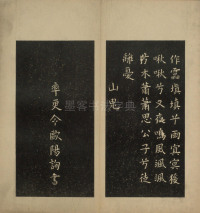 作雷填填兮雨冥冥猨
啾啾兮又夜鳴風颯颯
兮木蕭蕭思公子兮徒
離憂
山鬼
率更令歐陽詢書